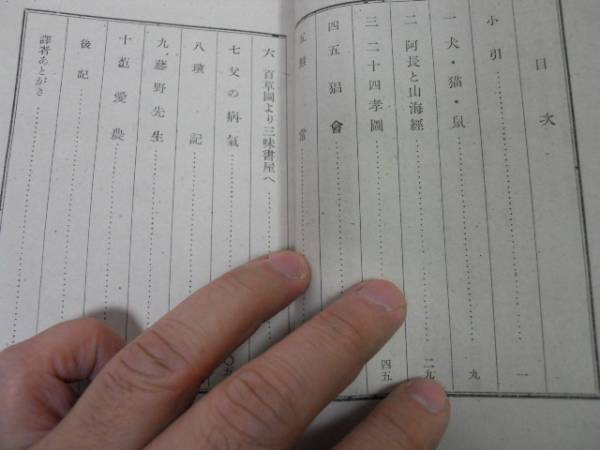 目次
小引 一
一 犬・猫・鼠 九
二 阿長と山海經 二九
三 二十四孝圖 四五
四 五猖會
五 無常
六 百草園より三味書屋へ
七 父の病氣
八 瑣記
九 藤野先生
十 范愛農
後記
譯者あとがき